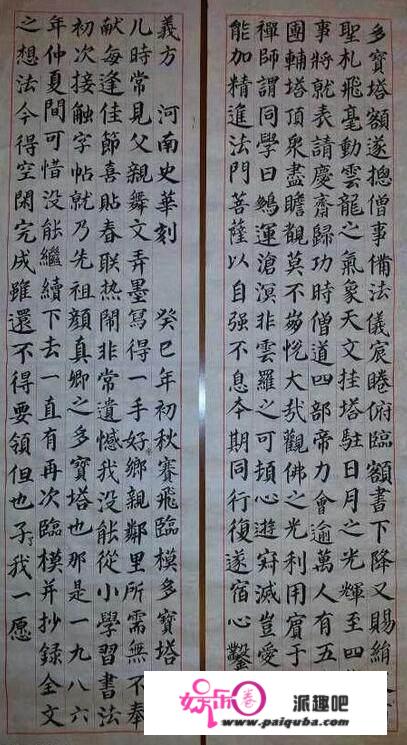 多寶塔額遂摠僧事備法儀宸睠俯臨額書下降又賜絹
聖札飛毫動雲龍之氣象天文挂塔駐日月之光輝至四
事將就表請慶齋歸功時僧道四部帝力會逾萬人有五
團輔塔頂衆盡瞻覩莫不崩悅大哉觀佛之光利用賓于
禪師謂同學曰鵬運滄溟非雲羅之可頓心遊寂滅豈愛
能加精進法門菩薩以自强不息本期同行復遂宿心鑿
義方 河南史華刻 癸巳年初秋賽飛臨模多寶塔
儿時常見父親舞文弄墨寫得一手好鄉親鄰里所需無不奉
献每逢佳節喜貼春联热鬧非常遺憾我没能從小學習書法
初次接触字帖就乃先祖顔真卿之多寶塔也那是一九八六
年仲夏間可惜没能繼續下去一直有再次臨模并抄録全文
之想法今得空閑完成雖還不得要領但也了我一愿
娱乐卷 派趣吧
www.paiquba.com